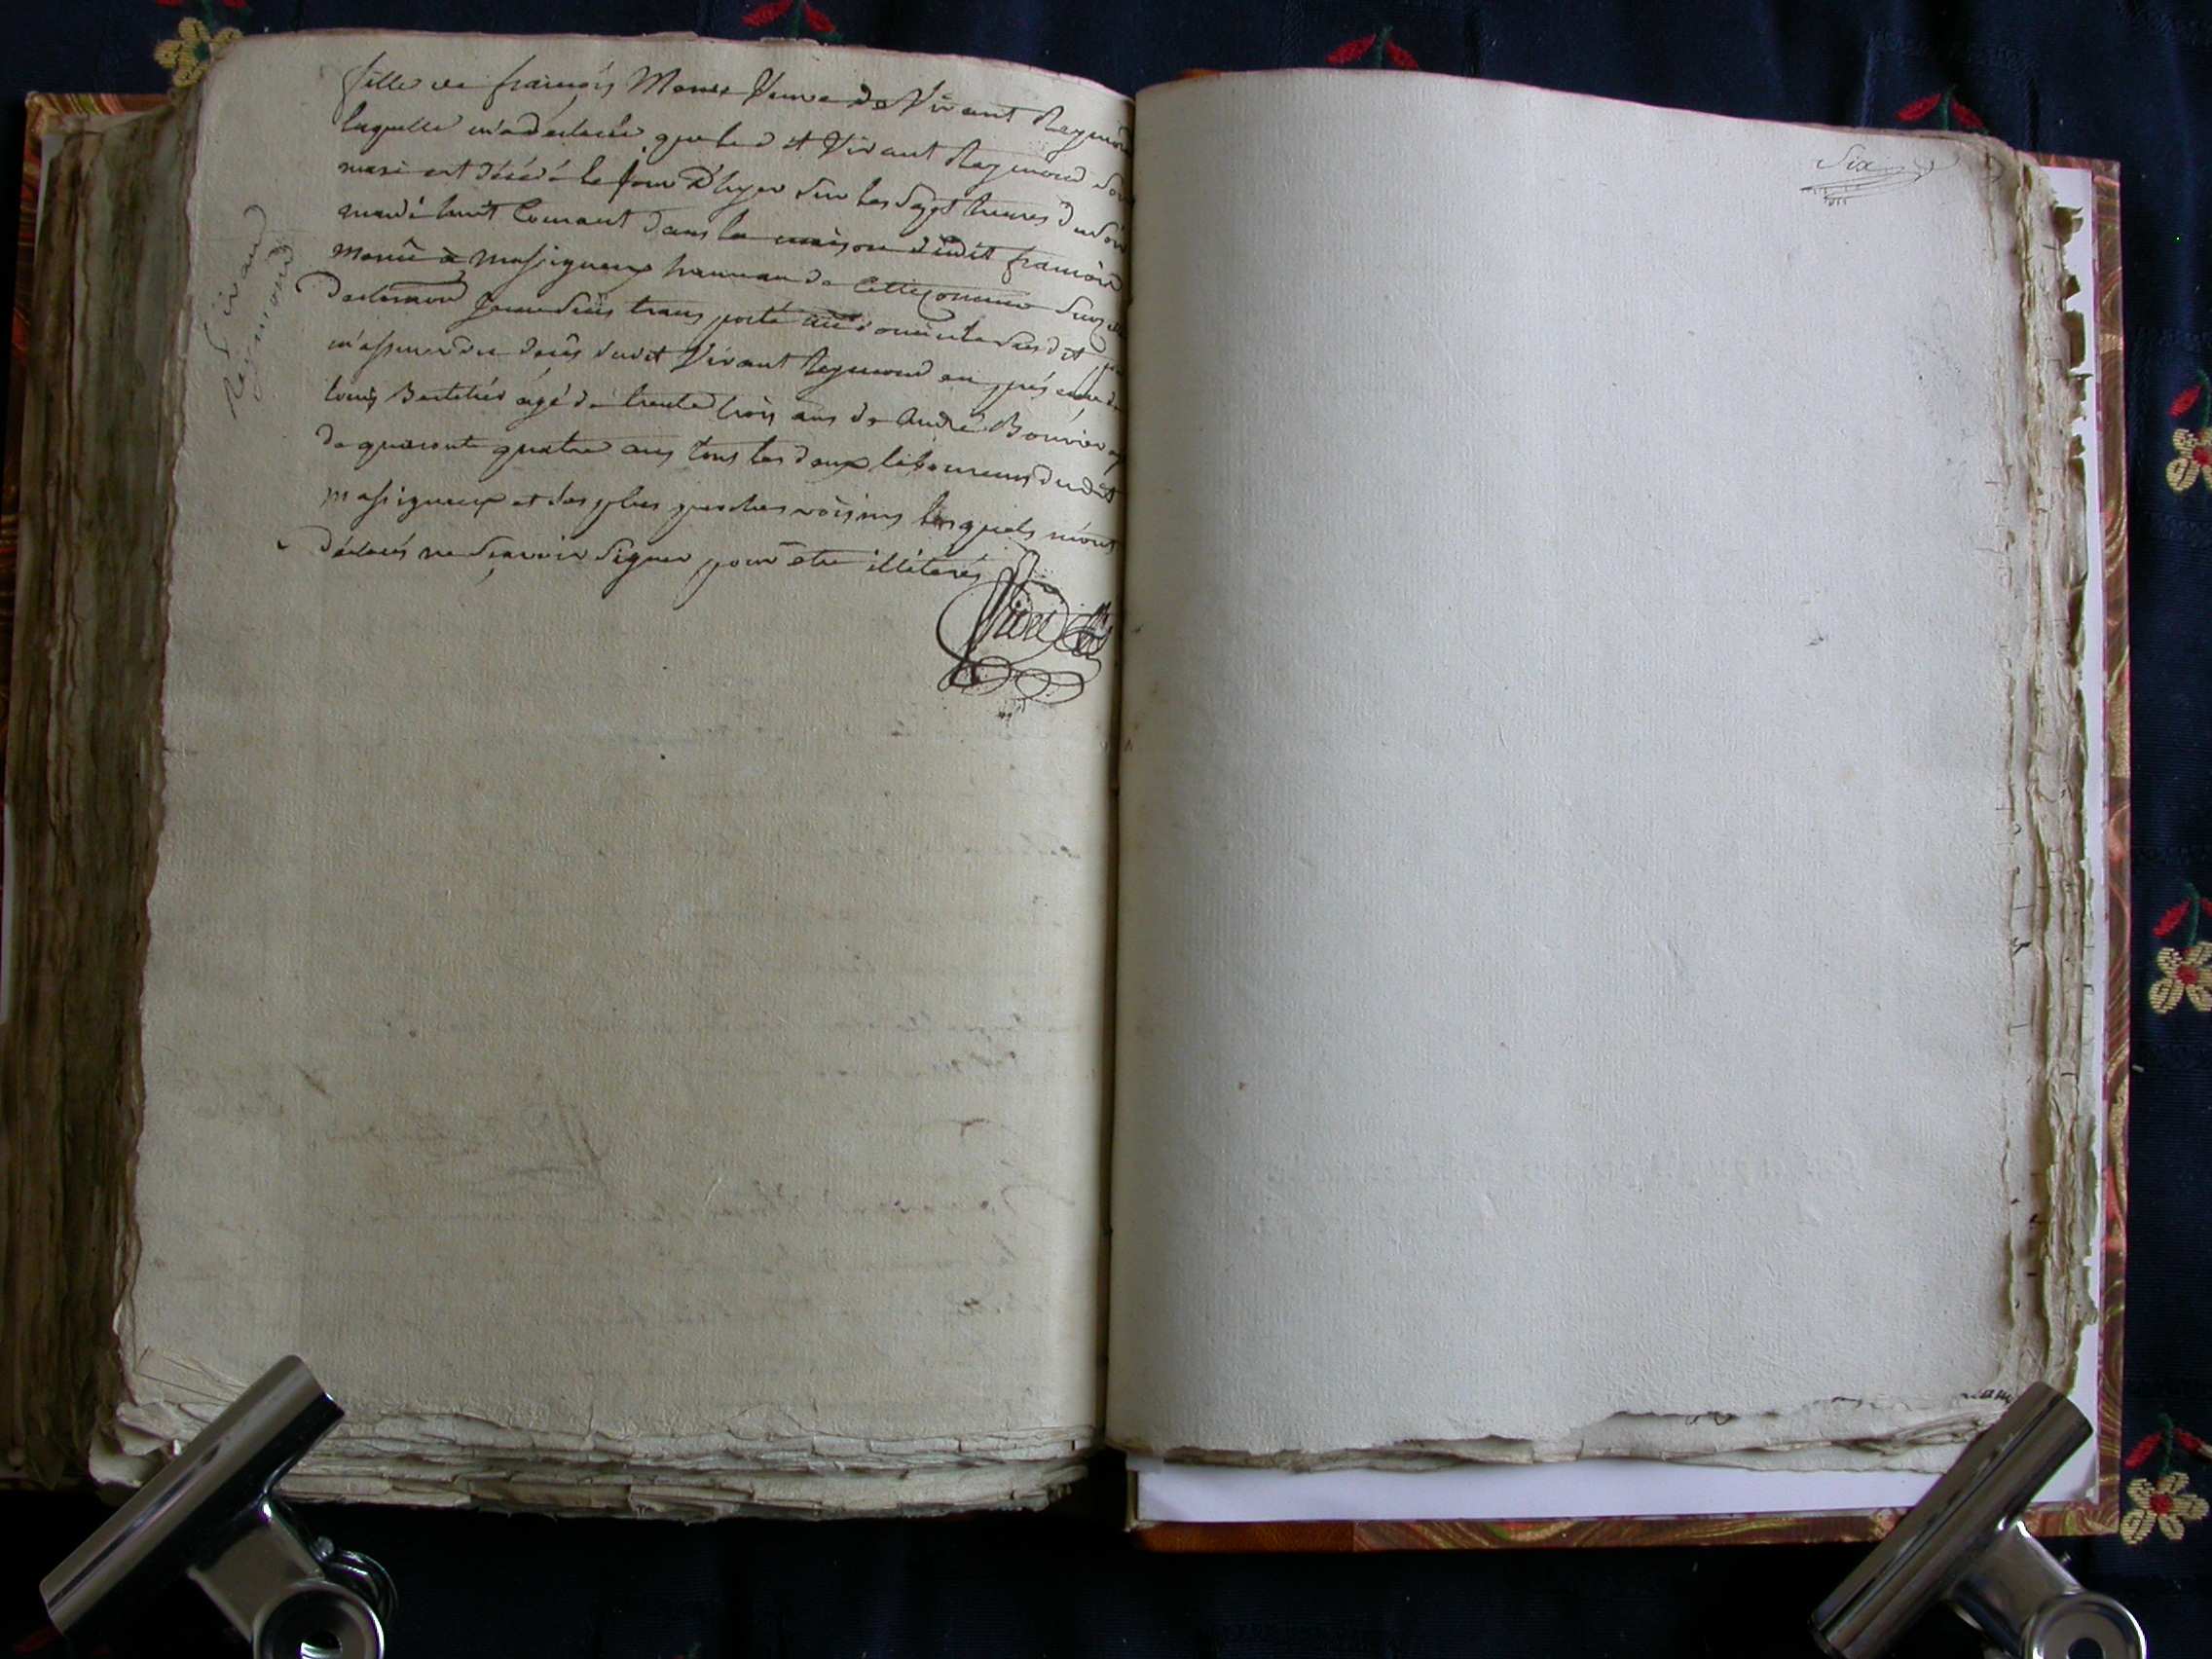 fille de françois Monet Veuve de Vivant Reymond
laquelle m'a declarée que led it Vivant Reymond son
mari est décédé le jour D'hyer sur les sept heures du soir
mardi huit Courant dans la maison dudit françois
à massigneux hammau de Cette Commune Sur
declaration je me suis transporté audomicile susdit pour
m'assurer du decès dudit Vivant Reymond en présence de
louis age de trente trois ans de André Bouvier
de quaronte quatre ans tous les deux laboureurs dudit
massigneux et des plus proches voisins lesquels m'ont
déclarés ne sçavoir signer pour être illiterés
Vivant
Reymond
Six